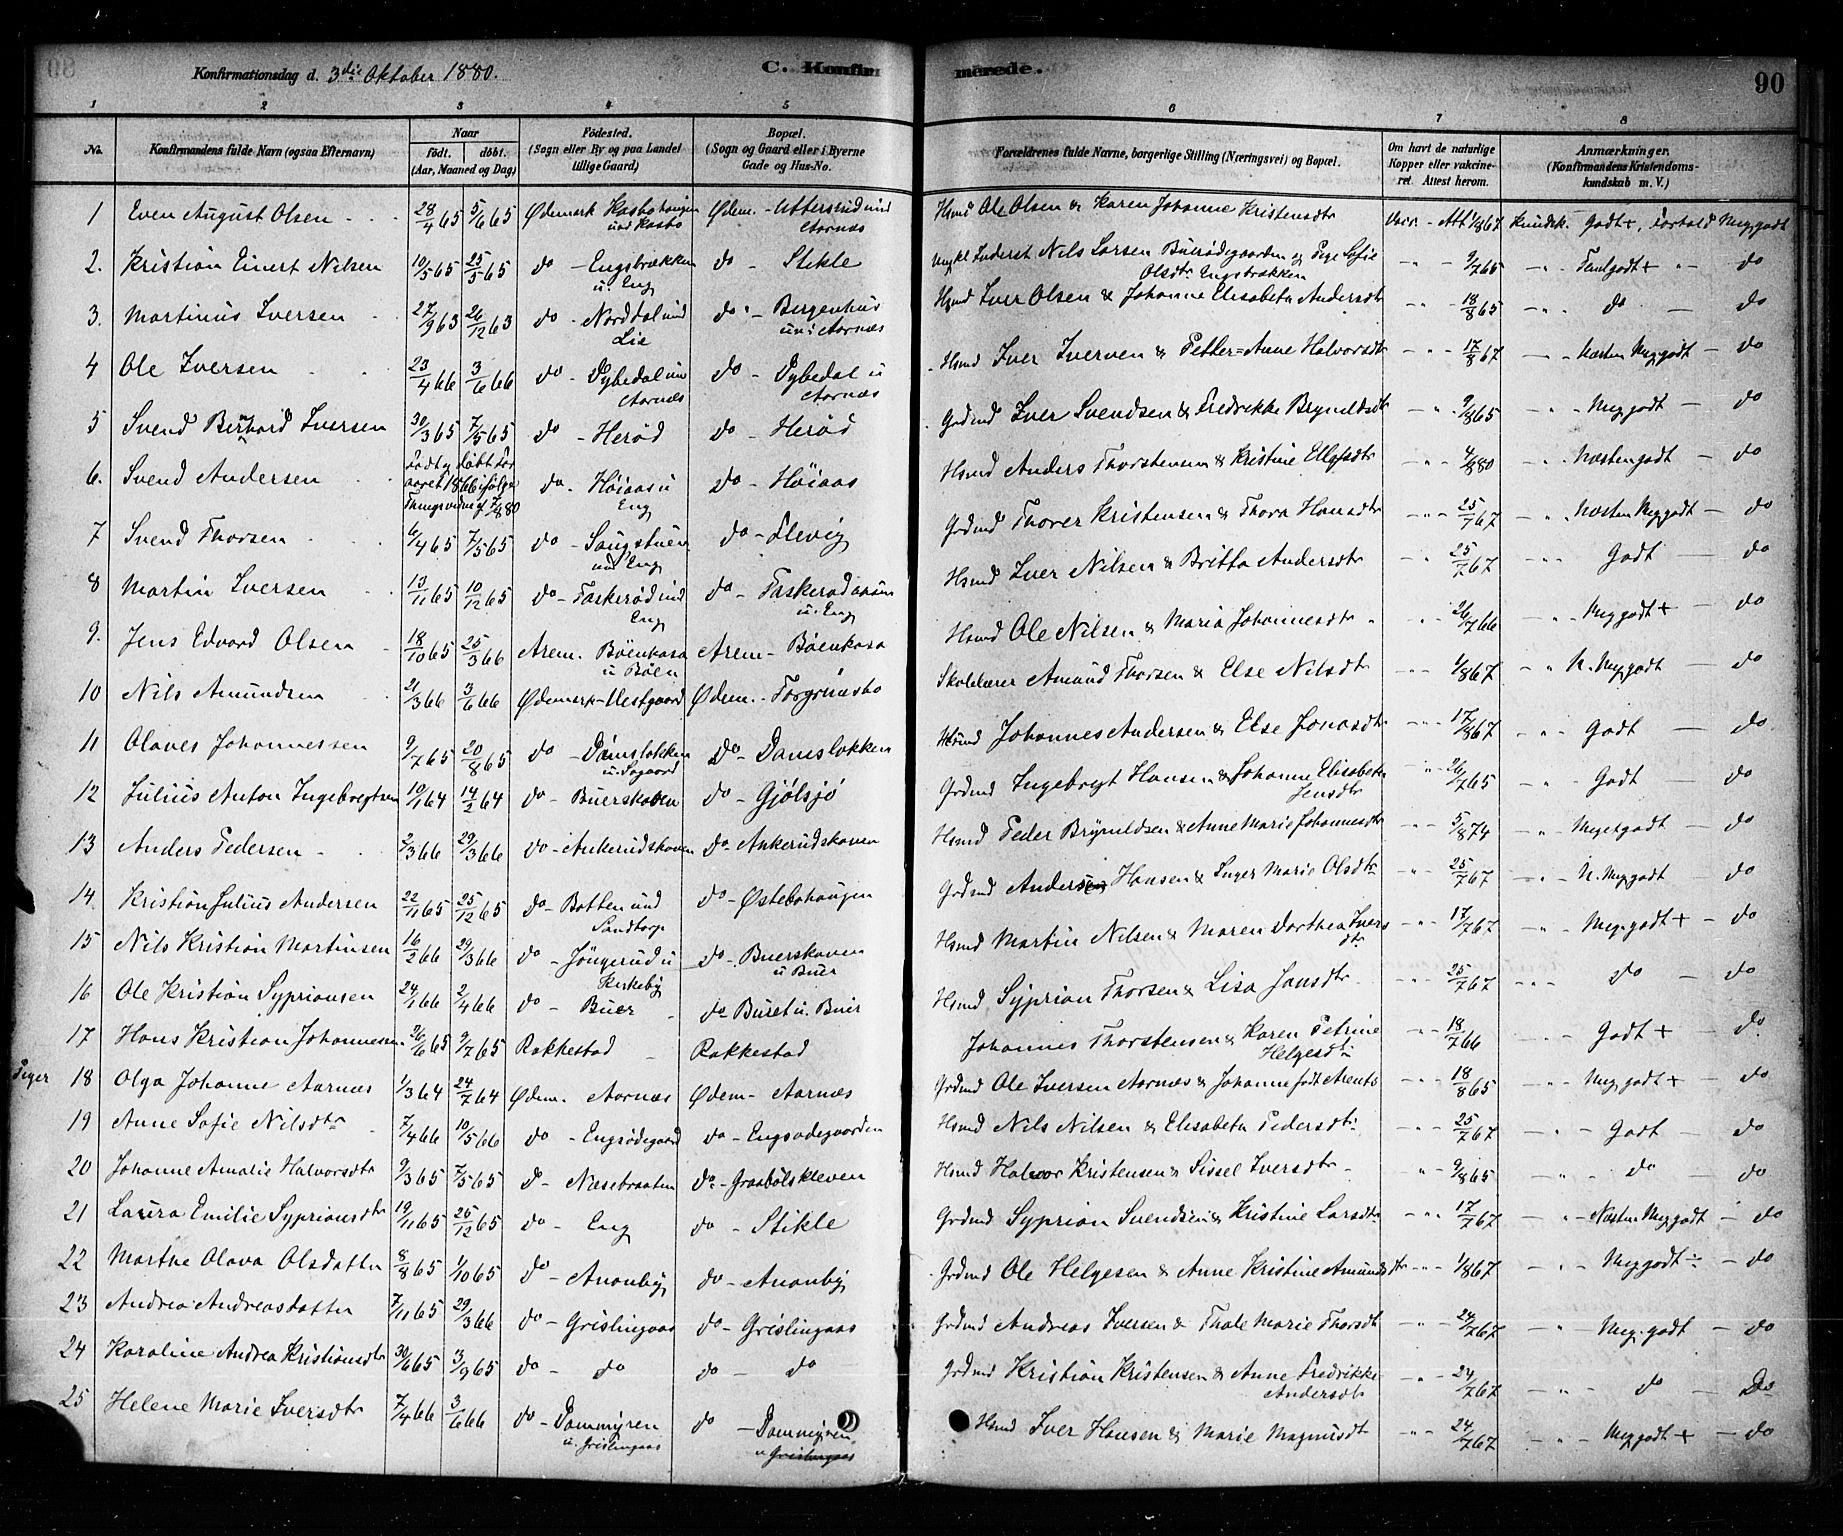 Konfirmationsdag d. 3die Oktober 1880. C. Konfirmerede. 90
1 2 3 4 5 6 7 8
No. Konfirmandens fulde Navn (ogsaa Efternavn) Naar født. døbt. (Aar, Maaned og Dag) Fødested. (Sogn eller By og paa Landet tillige Gaard) Bopæl. (Sogn og Gaard eller i Byerne Gade og Hus-No. Forældrenes fulde Navne, borgerlige Stilling (Næringsvei) og Bopæl. Om havt de naturlige Kopper eller vakcineret. Attest herom. Anmærkninger. (Konfirmandens Kristendomskundskab m. V.)
1 Even August Olsen 28/4 65 5/6 65 Ødemark Ødem. - Hsmd Ole Olsen & Karen Johanne Kristensdtr Att 1/8 67 Kundsk. Godt+, Forhold Meg godt
2. Kristian Einert Nilsen 10/5 65 25/5 65 do - Engsbrækken u. Eng do - Stikle Nils Larsen Buerødegaarden & Pige Sofie Olsdtr Engsbrækken 9/7 65 do
3. Martinus Iversen 27/9 63 26/12 63 do - Norddal und Lie do - Bergenhus un: Aarnæs Hsmd Iver Olsen & Johanne Elisabeth Andersdtr 18/8 65 do do
4 Ole Iversen 23/4 66 3/6 66 do - Dybedal un Aarnæs do - Dybedal u Aarnæs Hsmd Iver Iversen & Petter=Anne Halvorsdtr 17/8 67 Næsten Meg godt - do
5 Svend Bernhard Iversen 30/3 65 7/5 65 do - Herød do - Herød Grdmd Iver Svendsen & Fredrikke Brynildsdtr 9/8 65 Meg godt - do
6. Svend Andersen Født og døbt før aaret 1866 ifølge Thingsvidne af 7/8 80 do - Høiaas u Eng do - Høiaas Hsmd Anders Thorstensen & Kristine Ellefsdtr 4/8 80 Næsten godt - do
7 Svend Thorsen 6/4 65 7/5 65 do - Saugstuen und Eng do - Elevig Grdmd Thorer Kristensen & Thora Hansdtr 25/7 67 Næsten Meg godt - do
8 Martin Iversen 13/11 65 10/12 65 do - Taskerød und Eng do - u. Eng Hsmd Iver Nilsen & Britta Andersdtr 25/7 67 Godt - do
9. Jens Edvard Olsen 18/10 65 25/3 66 Arem. Bøenkasa u Bøen Arem - Bøenkasa Hsmd Ole Nilsen & Maria Johannesdtr 26/7 66 Meg godt + - do
10 Nils Amundsen 21/3 66 3/6 66 Ødemark - Vestgaard Ødem. - Torgrimsbo Skolelærer Amund Thorsen & Else Nilsdtr 1/8 67 N. Meg godt - do
11 Olaves Johannessen 9/7 65 20/8 65 do - Damsløkken u. Søgaard do - Damsløkken Hsmd Johannes Andersen & Else Jonasdtr 17/8 67 Godt - do
12 Julius Anton Ingebregtsen 10/1 64 14/2 64 do - Buerskoven do - Gjølsjø Grdmd Ingebregt Hansen & Johanne Elisabeth Jensdtr 26/7 65 Godt - do
13 Anders Pedersen 2/3 66 29/3 66 do - Ankerudskoven do - Ankerudskoven Hsmd Peder Brynildsen & Anne Marie Johannesdtr 5/8 74 Megetgodt - do
14. Kristian Julius Andersen 22/11 65 25/12 65 do - Botten und Sandtorp do - Østebøhaugen Grdmd Anders Hansen & Inger Marie Olsdtr 25/7 67 N. Meg godt - do
15 Nils Kristian Martinsen 16/2 66 29/3 66 do - Jøngerud u Kirkeby do - Buerskoven u Buer Hsmd Martin Nilsen & Maren Dorthea Iversdtr 17/7 67 Meg. godt + - do
16 Ole Kristian Syprionsen 24/1 66 2/4 66 do - Buer do - Buret u. Buer Hsmd Syprian Thorsen & Lisa Jansdtr 25/7 67 do - do
17 Hans Kristian Johannessen 26/6 65 9/7 65 Rakkestad - Rakkestad Johannes Thorstensen & Karen Petrine Helgesdtr 18/7 66 Godt + - do
Piger 18 Olga Johanne Aarnæs 1/3 64 24/7 64 Ødem. Aarnæs Ødem - Aarnæs Grdmd Ole Iversen Aarnæs & Johanne født Arents 18/8 65 Meg. godt + - do
19 Anne Sofie Nilsdtr 7/4 66 10/5 66 do - Engsødegaard do - Engsødegaarden Hsmd Nils Nilsen & Elisabeth Pedersdtr 25/7 67 Godt - do
20 Johanne Amalie Halvorsdtr 9/3 65 7/5 65 do - Næsebraaten do - Graabølskleven Hsmd Halvor Kristensen & Sissel Iversdtr 9/8 65 do - do
21 Laura Emilie Syprionsdtr 19/11 65 25/12 65 do - Eng do - Stikle Grdmd Syprian Svendsen & Kristine Larsdtr 17/7 67 Næsten Meg godt - do
22 Marthe Olava Olsdatter 8/8 65 1/10 65 do - Ananby do - Ananby Grdmd Ole Helgesen & Anne Kristine Amundsdtr 1/8 67 Meg godt ÷ - do
23 Andrea Andreasdatter 7/11 65 29/3 66 do - Grislingaas do - Grislingaas Grdmd Andreas Iversen & Thale Marie Thorsdtr 24/7 67 Meg. godt - do
24 Karoline Andrea Kristiansdtr 30/6 65 3/9 65 do - do do - do Grdmd Kristian Kristensen & Anne Fredrikke Andersdtr 24/7 67 do - Do
25 Helene Marie Iversdtr 7/4 66 3/6 66 do - Dammyren u. Grislingaas do - Dammyren u Grislingaas Hsmd Iver Hansen & Marie Magnusdtr 24/7 67 Meg godt + - do